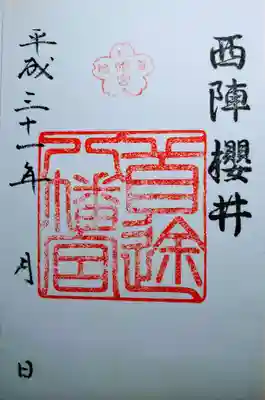 西陣櫻井
首途
八幡宮
平成三十一年 月 日